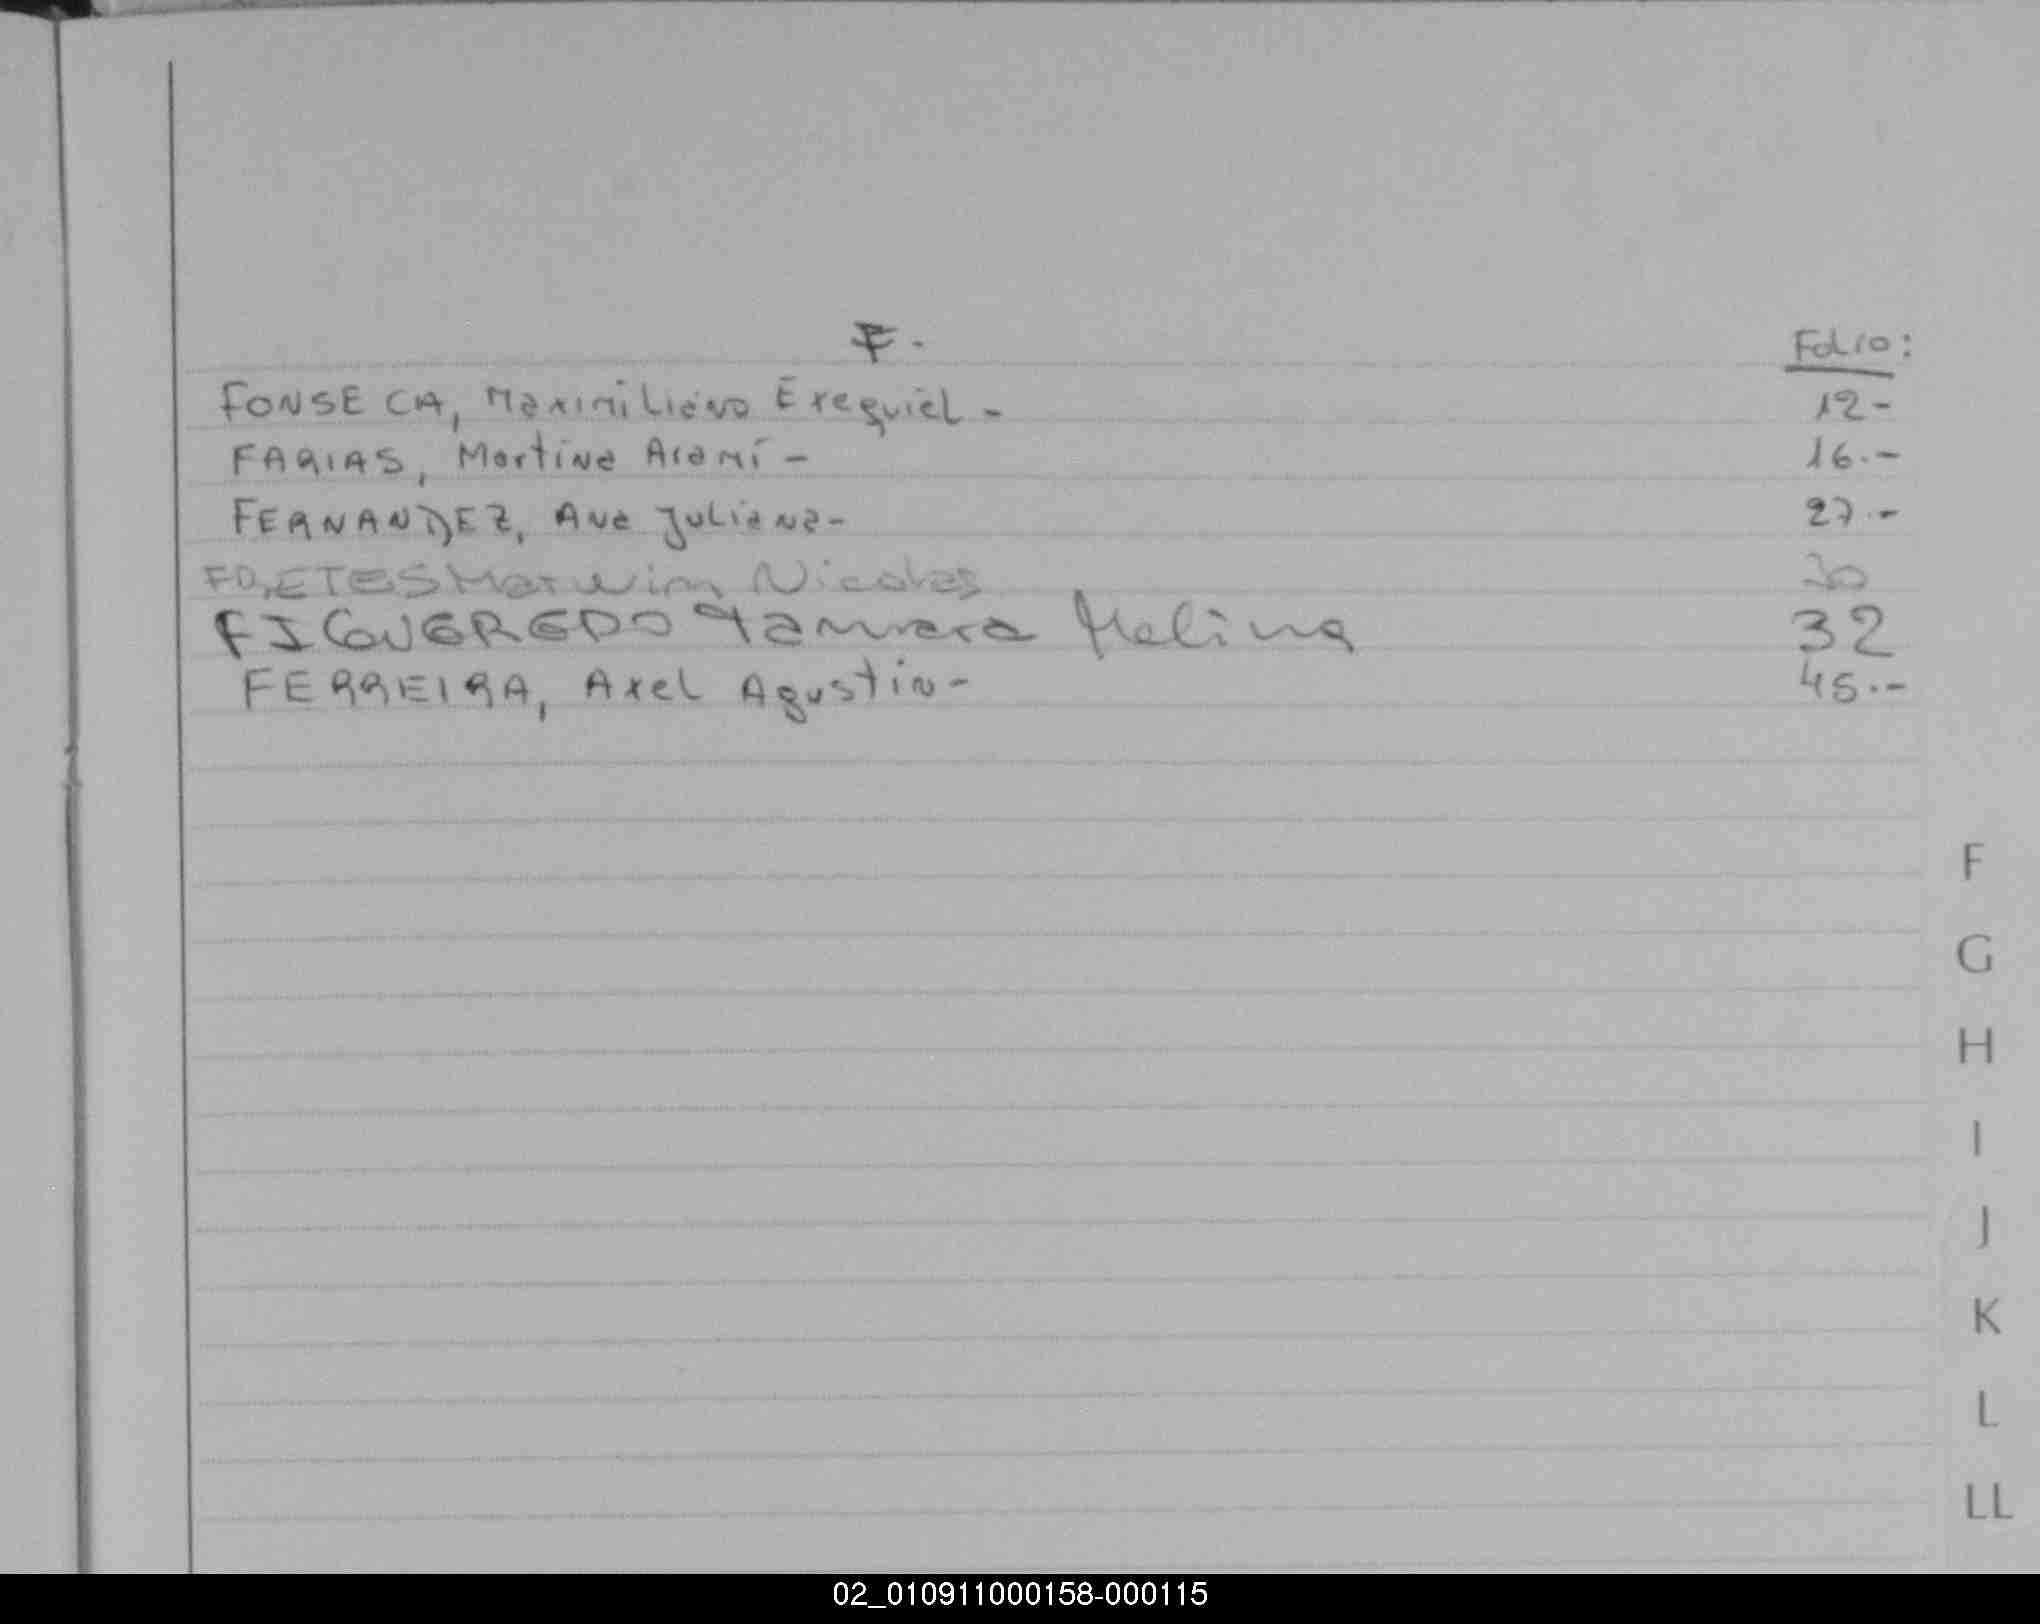 F.
Folio:
FONSECA, Maximiliano Exequiel - 12-
FARIAS, Martina Aramí - 16.-
FERNANDEZ, Ana Juliana- 27.-
FRETES Nicolas 30
FIGUEREDO Tamara Melina 32
FERREIRA, Axel Agustin- 45.-
F
G
H
I
J
K
L
LL
02_010911000158-000115